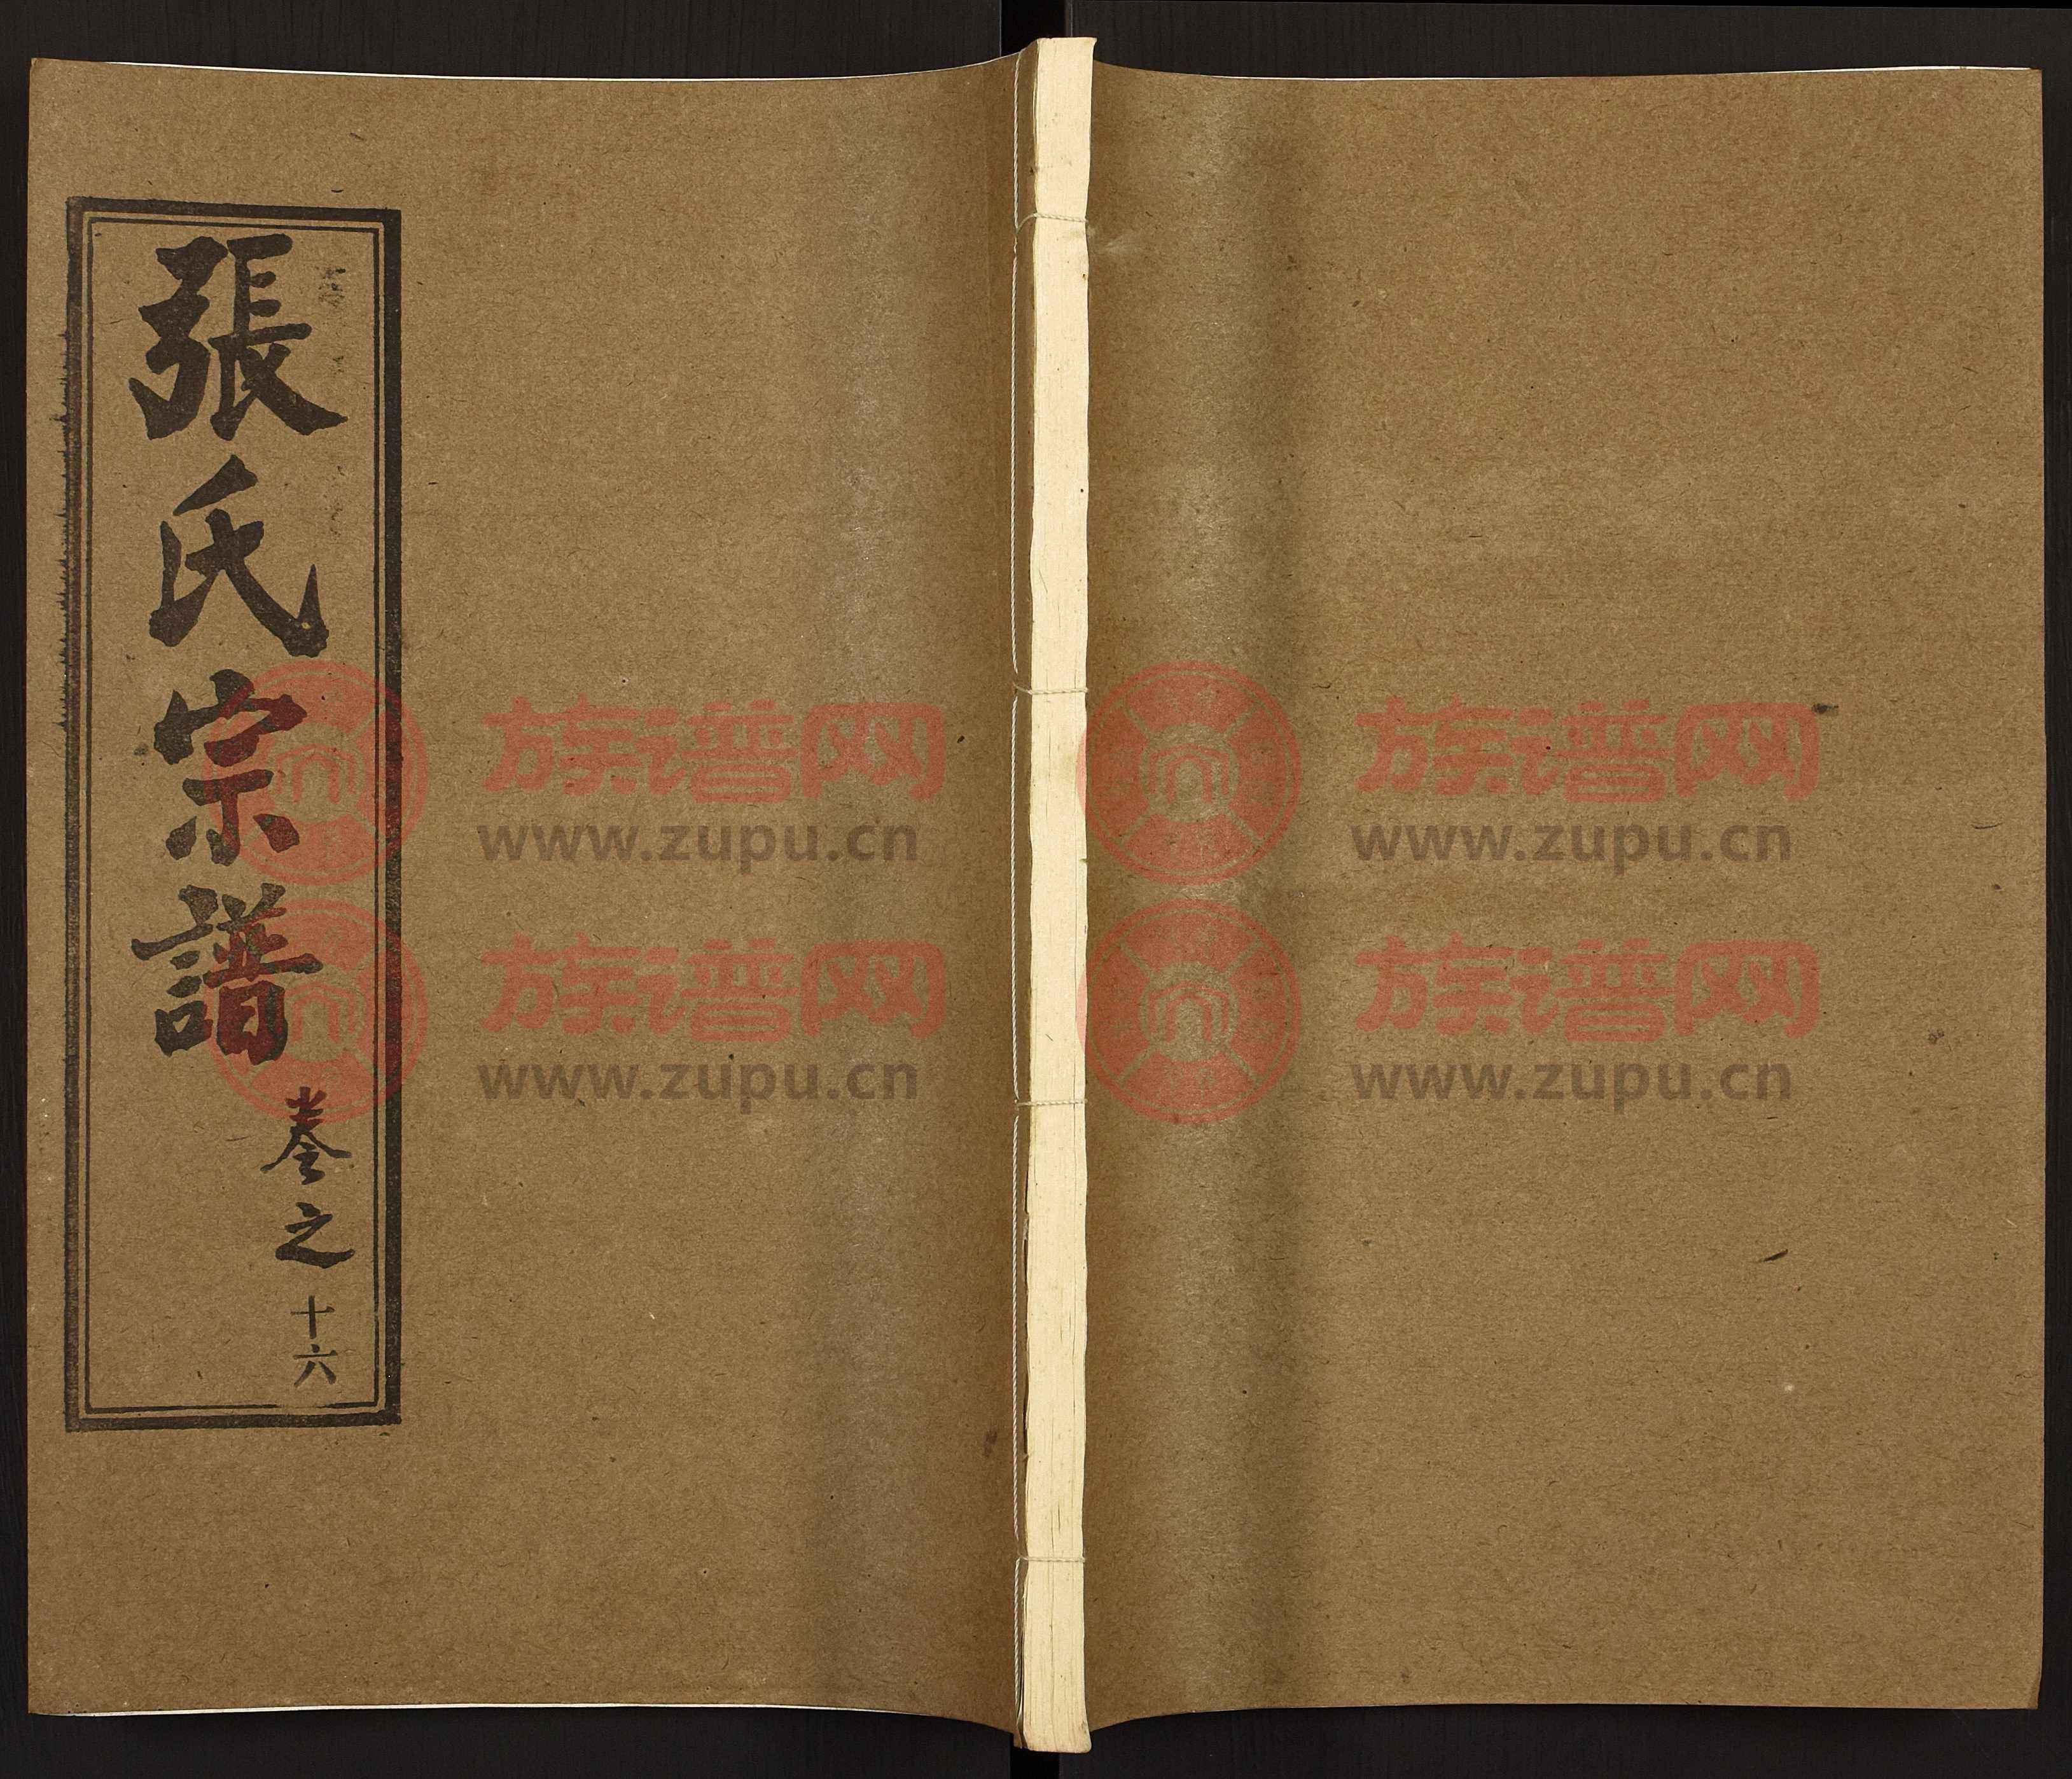 張氏宗譜
卷之十六
族谱网
www.zupu.cn
族谱网
www.zupu.cn
族谱网
www.zupu.cn
族谱网
www.zupu.cn